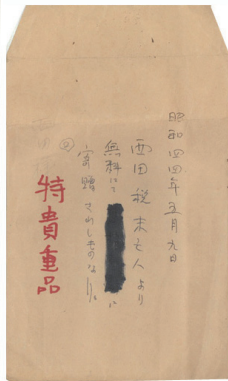 昭和四四年五月九日
西田税未亡人より
無料にて に
寄贈されしものなり。
特貴重品